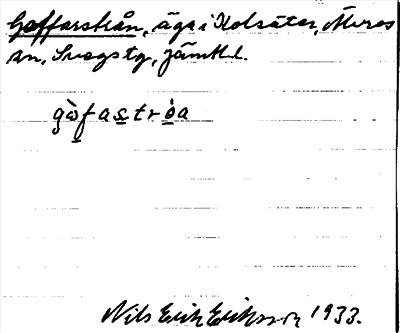 Goffarstrån, äga i Kolsäter, Överos
sn, Svegs tg, Jämtl.
gòfastròa
Nils Erik Eriksson 1933.